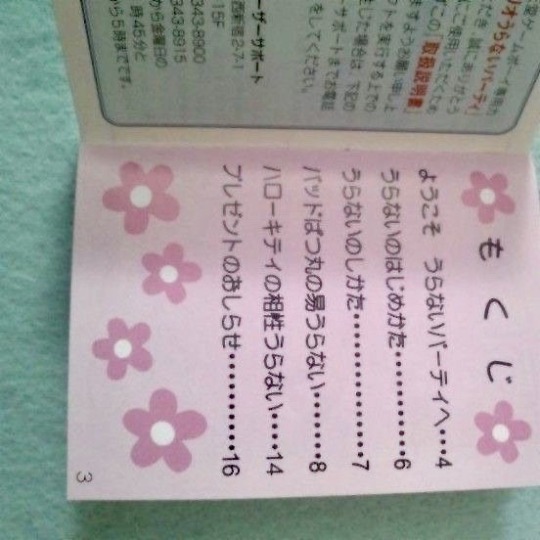 もくじ
ようこそ うらないパーティへ・・・4
うらないのはじめかた・・・・・・・・・・・6
うらないのしかた・・・・・・・・・・・・・・7
バッドばつ丸の易うらない・・・・・・・8
ハローキティの相性うらない・・・・14
プレゼントのおしらせ・・・・・・・・・・16
3
うらないパーティ」
だき、誠にありがとう
ご使用いただくてめ
「取扱説明書」
ますようお願い申し上
トを実行する上での
生じた場合は、下記の
ーサポートまでお電話
をしてください。
ーザーサポート
西新宿2-7-1
15F
343-8900
343-8915
から金曜日の
時45分と
から5時までです。